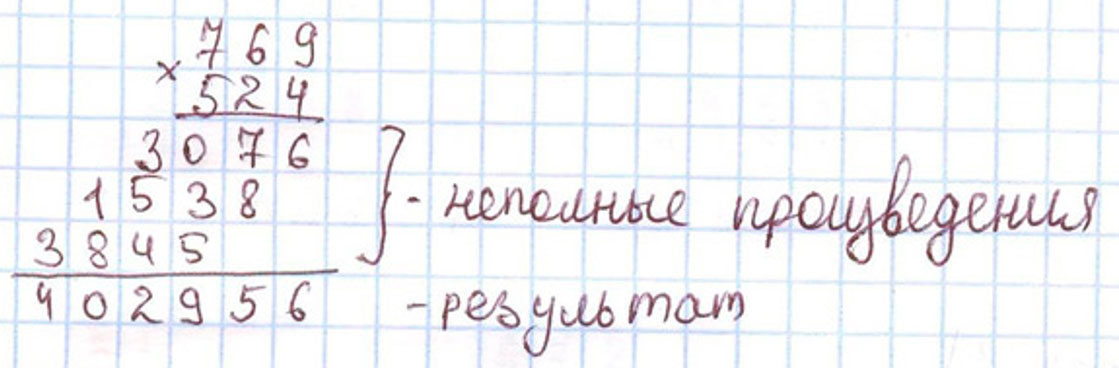 769
× 524
3076
1538 } - неполные произведения
3845
402956 - результат